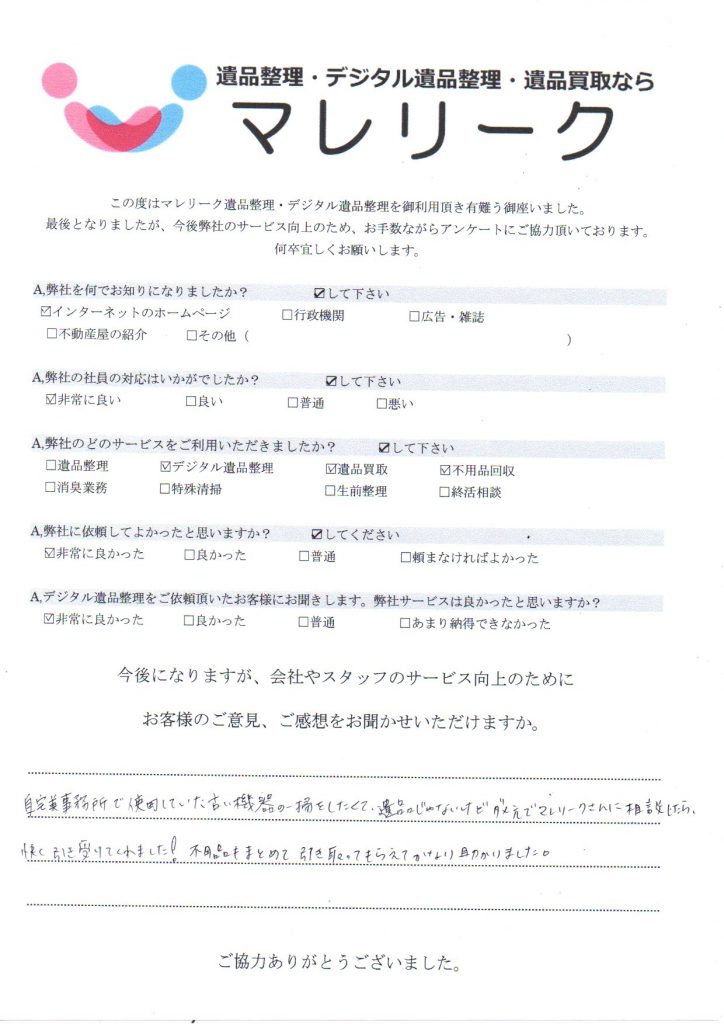 遺品整理・デジタル遺品整理・遺品買取なら
マレリーク
この度はマレリーク遺品整理・デジタル遺品整理を御利用頂き有難う御座いました。
最後となりましたが、今後弊社のサービス向上のため、お手数ながらアンケートにご協力頂いております。
何卒宜しくお願いします。
A,弊社を何でお知りになりましたか？ ☑して下さい
☑インターネットのホームページ □行政機関 □広告・雑誌
□不動産屋の紹介 □その他（ ）
A,弊社の社員の対応はいかがでしたか？ ☑して下さい
☑非常に良い □良い □普通 □悪い
A,弊社のどのサービスをご利用いただきましたか？ ☑して下さい
□遺品整理 ☑デジタル遺品整理 ☑遺品買取 ☑不用品回収
□消臭業務 □特殊清掃 □生前整理 □終活相談
A,弊社に依頼してよかったと思いますか？ ☑してください
☑非常に良かった □良かった □普通 □頼まなければよかった
A,デジタル遺品整理をご依頼頂いたお客様にお聞きします。弊社サービスは良かったと思いますか？
☑非常に良かった □良かった □普通 □あまり納得できなかった
今後になりますが、会社やスタッフのサービス向上のために
お客様のご意見、ご感想をお聞かせいただけますか。
自宅兼事務所で使用していた古い機器の一掃をしたくて、遺品じゃないけどダメ元でマレリークさんに相談したら、
快く引き受けてくれました! 不用品もまとめて引き取ってもらえてかなり助かりました。
ご協力ありがとうございました。